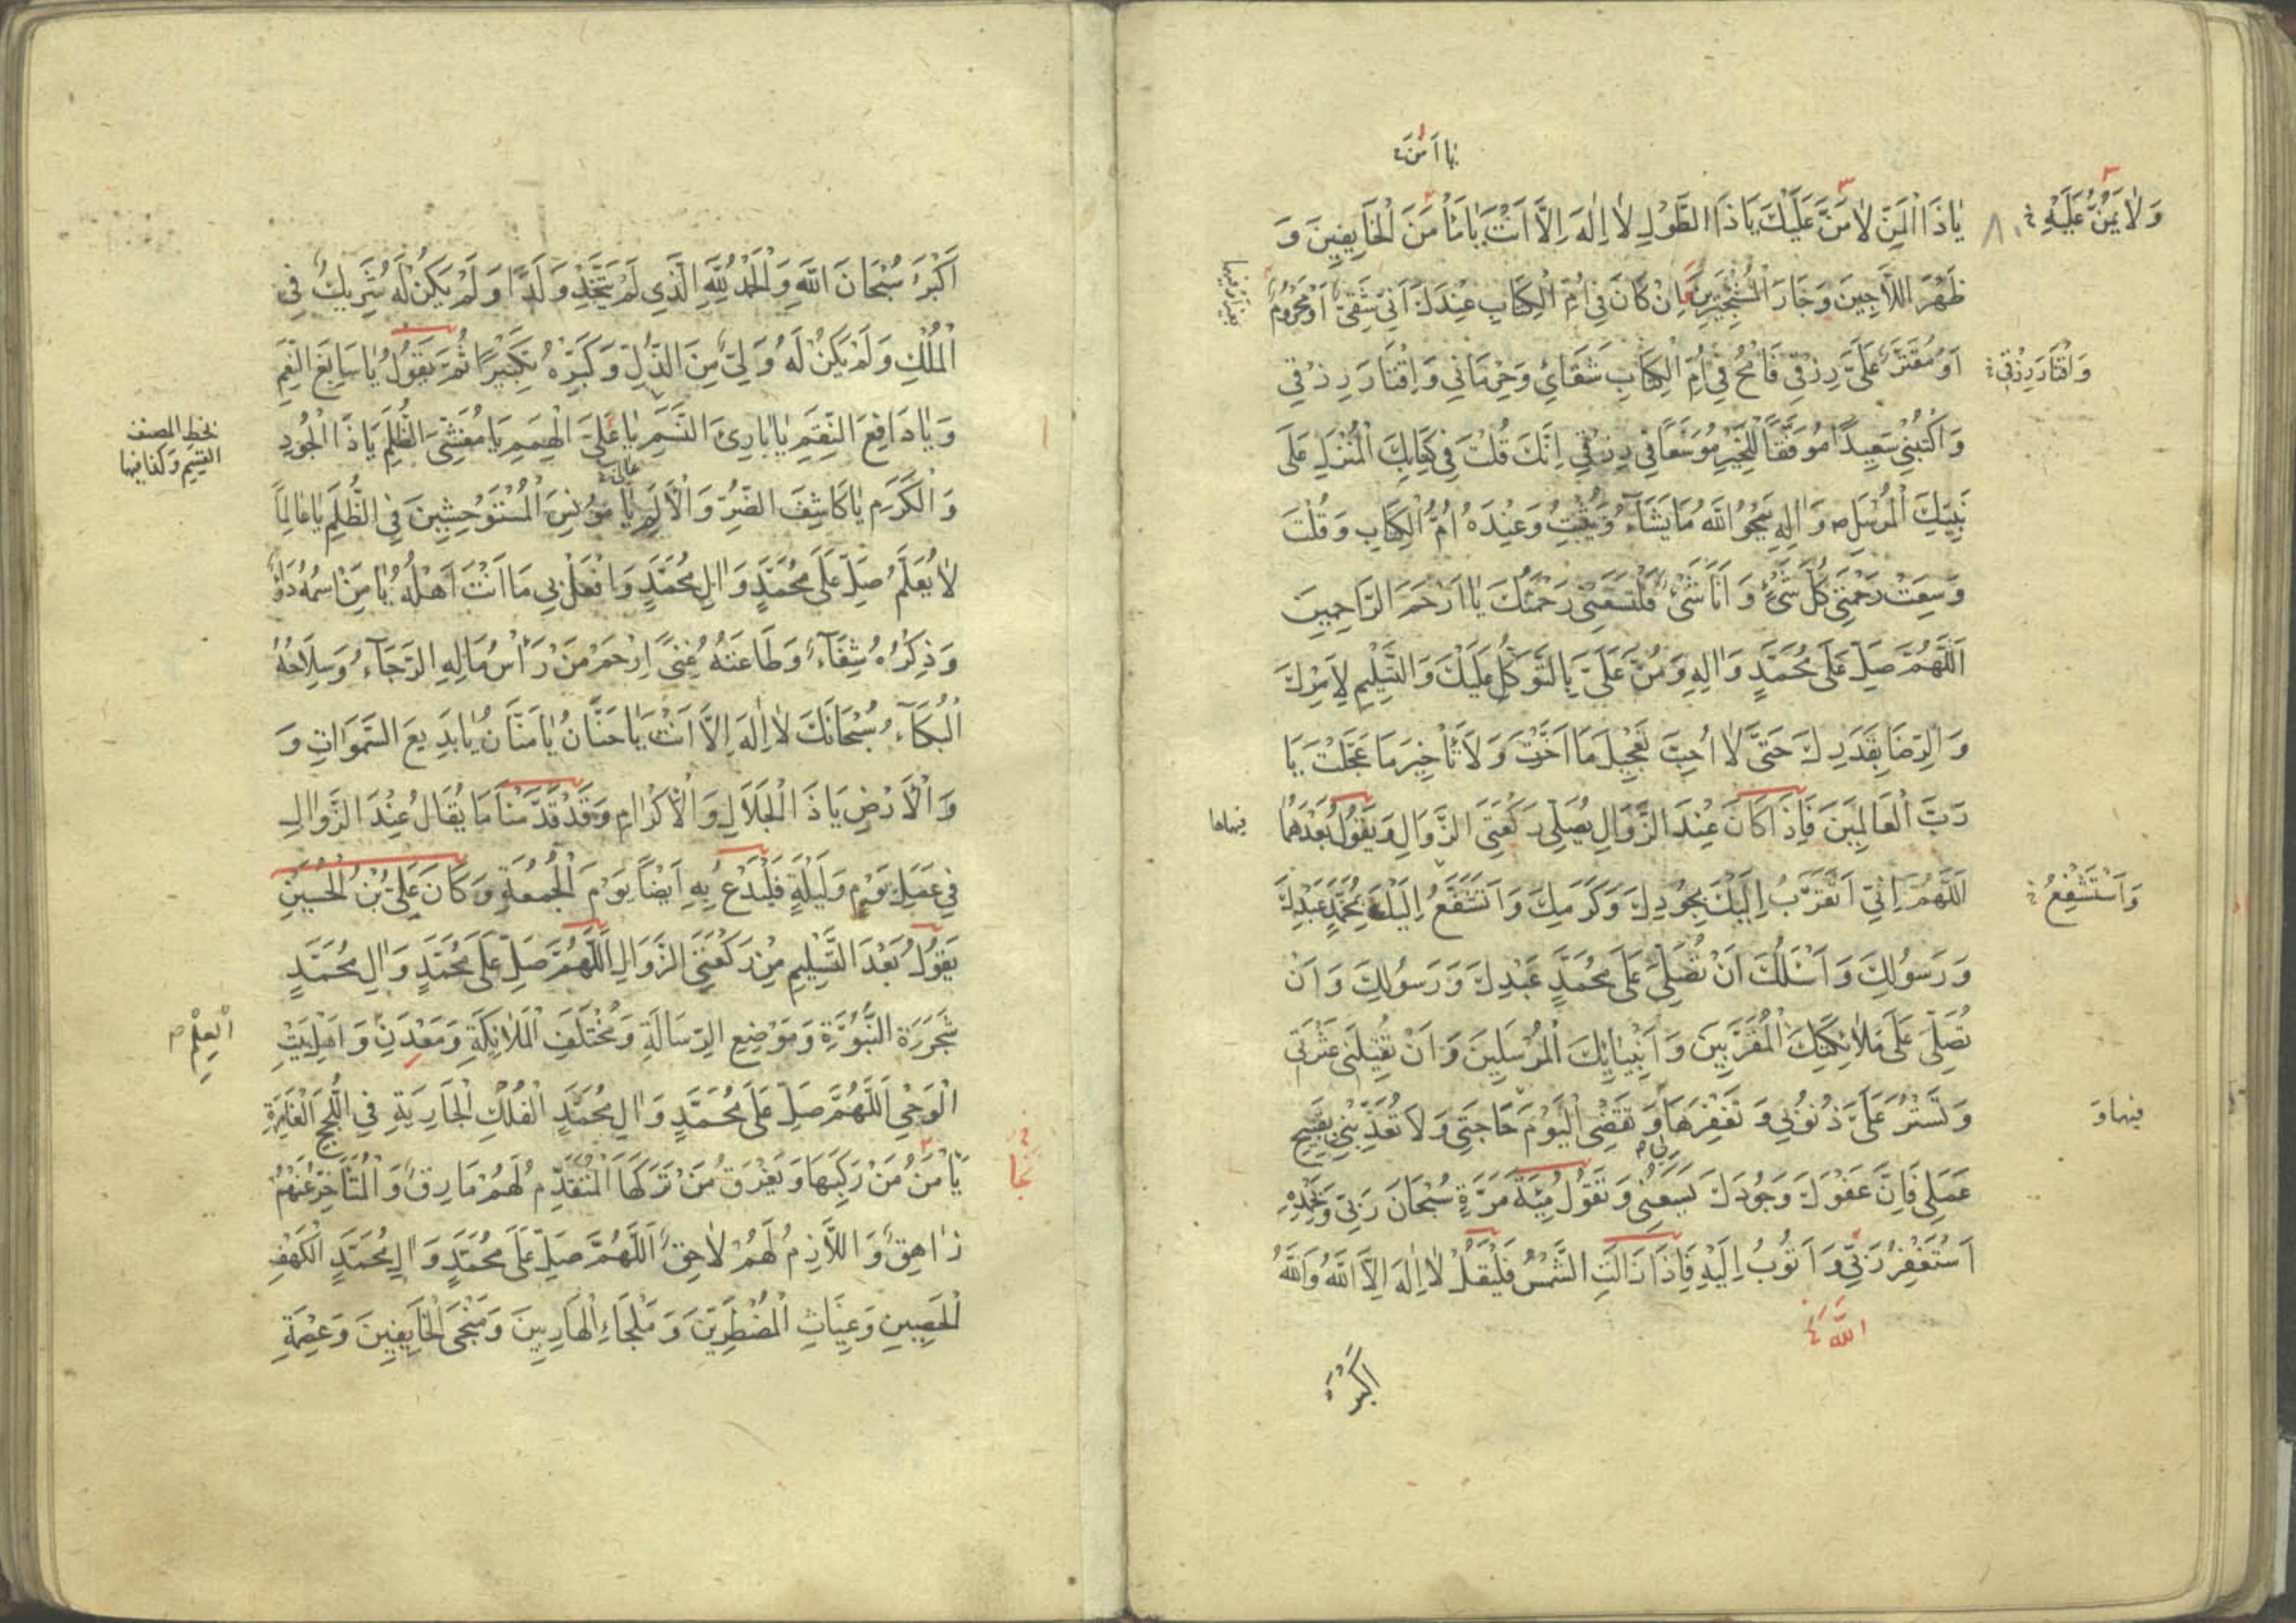 يا امن
يٰا ذَا الْمَنِّ لاٰ مَنَّ عَلَيْكَ يَا ذَا الطَّوْلِ لاٰ اِلٰهَ اِلَّا اَنْتَ يٰا مَأْمَنَ الْخَايِفِينَ وَ
وَلاٰ يُمَنُّ عَلَيْهِ
ظَهْرَ اللَّاجِينَ وَجَارَ الْمُسْتَجِيرِينَ اِنْ كَانَ فِي اُمِّ الْكِتَابِ عِنْدَكَ اَنِّي شَقِيٌّ اَوْ مَحْرُومٌ
اَوْ مُقَتَّرٌ عَلَيَّ رِزْقِي فَامْحُ فِي اُمِّ الْكِتَابِ شَقَائِي وَحِرْمَانِي وَاِقْتَارَ رِزْقِي
وَاقْتَارَ رِزْقِي
وَاكْتُبْنِي سَعِيدًا مُوَفَّقًا لِلْخَيْرِ مُوَسَّعًا فِي رِزْقِي اِنَّكَ قُلْتَ فِي كِتَابِكَ الْمُنْزَلِ عَلَى
نَبِيِّكَ الْمُرْسَلِ ص وَاٰلِهِ يَمْحُو اللّٰهُ مَا يَشَآءُ وَيُثْبِتُ وَعِنْدَهُ اُمُّ الْكِتَابِ وَقُلْتَ
وَسِعَتْ رَحْمَتِي كُلَّ شَيْءٍ وَاَنَا شَيْءٌ فَلْتَسَعْنِي رَحْمَتُكَ يٰا اَرْحَمَ الرَّاحِمِينَ
اَللّٰهُمَّ صَلِّ عَلَى مُحَمَّدٍ وَاٰلِهِ وَمُنَّ عَلَيَّ بِالتَّوَكُّلِ عَلَيْكَ وَالتَّسْلِيمِ لِاَمْرِكَ
وَالرِّضَا بِقَدَرِكَ حَتَّى لاٰ اُحِبَّ تَعْجِيلَ مَا اَخَّرْتَ وَلَا تَأْخِيرَ مَا عَجَّلْتَ يَا
رَبَّ الْعَالَمِينَ فَاِذَا كَانَ عِنْدَ الزَّوَالِ يُصَلِّي رَكْعَتَيِ الزَّوَالِ وَيَقُولُ بَعْدَهُمَا
اَللّٰهُمَّ اِنِّي اَتَقَرَّبُ اِلَيْكَ بِجُودِكَ وَكَرَمِكَ وَاَتَشَفَّعُ اِلَيْكَ بِمُحَمَّدٍ عَبْدِكَ
وَاَسْتَشْفِعُ
وَرَسُولِكَ وَاَسْئَلُكَ اَنْ تُصَلِّيَ عَلَى مُحَمَّدٍ عَبْدِكَ وَرَسُولِكَ وَاَنْ
تُصَلِّيَ عَلَى مَلاٰئِكَتِكَ الْمُقَرَّبِينَ وَاَنْبِيَائِكَ الْمُرْسَلِينَ وَاَنْ تُقِيلَنِي عَثْرَتِي
وَتَسْتُرَ عَلَيَّ ذُنُوبِي وَتَغْفِرَهَا وَتَقْضِيَ الْيَوْمَ حَاجَتِي وَلَا تُعَذِّبْنِي بِقَبِيحِ
فيهما وَ
عَمَلِي فَاِنَّ عَفْوَكَ وَجُودَكَ يَسَعُنِي وَتَقُولُ مِئَةَ مَرَّةٍ سُبْحَانَ رَبِّي وَبِحَمْدِهِ
اَسْتَغْفِرُ رَبِّي وَاَتُوبُ اِلَيْهِ فَاِذَا زَالَتِ الشَّمْسُ فَلْيَقُلْ لاٰ اِلٰهَ اِلَّا اللّٰهُ وَاللّٰهُ
الله
اكبر
اَكْبَرُ سُبْحَانَ اللّٰهِ وَالْحَمْدُ لِلّٰهِ الَّذِي لَمْ يَتَّخِذْ وَلَدًا وَلَمْ يَكُنْ لَهُ شَرِيكٌ فِي
الْمُلْكِ وَلَمْ يَكُنْ لَهُ وَلِيٌّ مِنَ الذُّلِّ وَكَبِّرْهُ تَكْبِيرًا ثُمَّ يَقُولُ يٰا سَابِغَ النِّعَمِ
وَيٰا دَافِعَ النِّقَمِ يٰا بَارِئَ النَّسَمِ يٰا عَلِيَّ الْهِمَمِ يَا مُغَشِّيَ الظُّلَمِ يَا ذَا الْجُودِ
بخط المصنف
القيم وكفا فيها
وَالْكَرَمِ يٰا كَاشِفَ الضُّرِّ وَالْاَلَمِ يٰا مُونِسَ الْمُسْتَوْحِشِينَ فِي الظُّلَمِ يٰا عَالِمًا
لاٰ يُعَلَّمُ صَلِّ عَلَى مُحَمَّدٍ وَاٰلِ مُحَمَّدٍ وَافْعَلْ بِي مَا اَنْتَ اَهْلُهُ يٰا مَنِ اسْمُهُ دَوَاءٌ
وَذِكْرُهُ شِفَآءٌ وَطَاعَتُهُ غِنًى اِرْحَمْ مَنْ رَأْسُ مَالِهِ الرَّجَآءُ وَسِلَاحُهُ
الْبُكَآءُ سُبْحَانَكَ لاٰ اِلٰهَ اِلَّا اَنْتَ يَا حَنَّانُ يٰا مَنَّانُ يٰا بَدِيعَ السَّمٰوَاتِ وَ
وَالْاَرْضِ يَا ذَا الْجَلَالِ وَالْاِكْرَامِ وَقَدْ قَدَّمْنَا مَا يُقَالُ عِنْدَ الزَّوَالِ
فِي عَمَلِ يَوْمٍ وَلَيْلَةٍ فَلْيَدْعُ بِهِ اَيْضًا يَوْمَ الْجُمُعَةِ وَكَانَ عَلِيُّ بْنُ الْحُسَيْنِ
يَقُولُ بَعْدَ التَّسْلِيمِ مِنْ رَكْعَتَيِ الزَّوَالِ اَللّٰهُمَّ صَلِّ عَلَى مُحَمَّدٍ وَاٰلِ مُحَمَّدٍ
شَجَرَةِ النُّبُوَّةِ وَمَوْضِعِ الرِّسَالَةِ وَمُخْتَلَفِ الْمَلَائِكَةِ وَمَعْدِنِ وَاَهْلِ بَيْتِ
الْعِلْمِ
الْوَحْيِ اَللّٰهُمَّ صَلِّ عَلَى مُحَمَّدٍ وَاٰلِ مُحَمَّدٍ الْفُلْكِ الْجَارِيَةِ فِي اللُّجَجِ الْغَامِرَةِ
يَأْمَنُ مَنْ رَكِبَهَا وَيَغْرَقُ مَنْ تَرَكَهَا الْمُتَقَدِّمُ لَهُمْ مَارِقٌ وَالْمُتَأَخِّرُ عَنْهُمْ
زَاهِقٌ وَاللَّازِمُ لَهُمْ لاٰحِقٌ اَللّٰهُمَّ صَلِّ عَلَى مُحَمَّدٍ وَاٰلِ مُحَمَّدٍ الْكَهْفِ
الْحَصِينِ وَغِيَاثِ الْمُضْطَرِّينَ وَمَلْجَاءِ الْهَارِبِينَ وَمَنْجَى الْخَايِفِينَ وَعِصْمَةِ